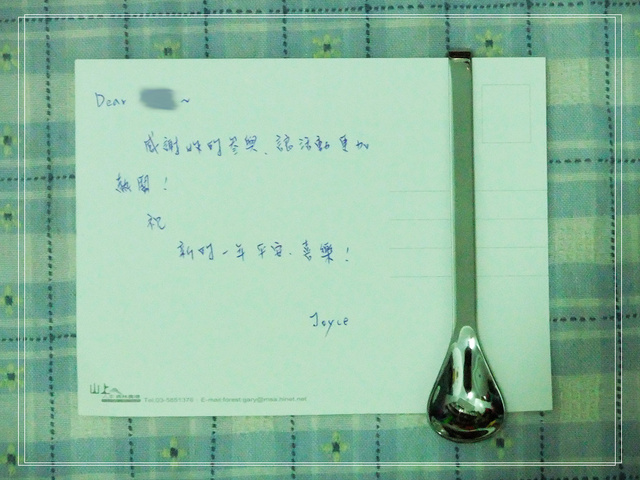 Dear ~
感謝妳的參與、讓活動更加
熱鬧！
祝
新的一年平安、喜樂！
Joyce
山上
Tel:03-5851376 · E-mail:forest.gary@msa.hinet.net